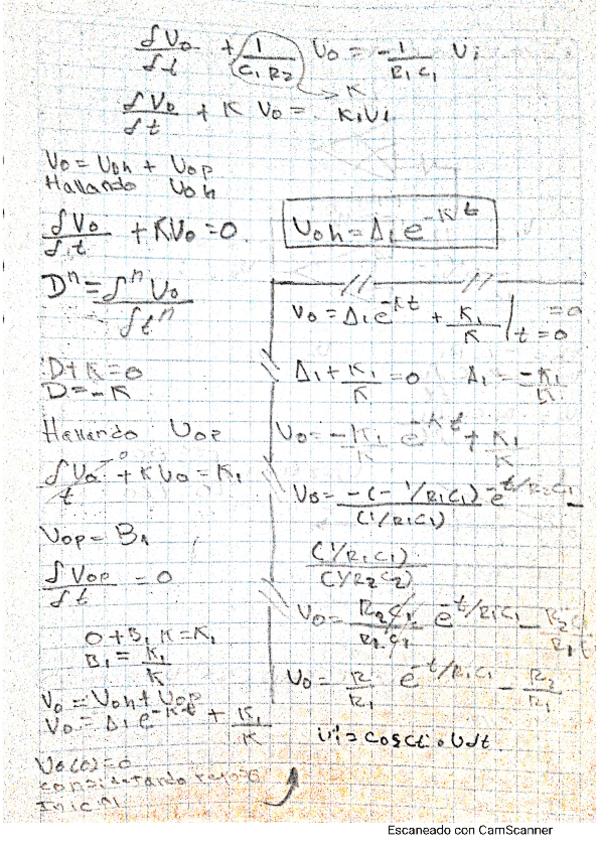 δVo/δt + 1/(C₁R₂) Vo = -1/(R₁C₁) Vi
→ K
δVo/δt + K Vo = K₁Vi
Vo = Voh + Vop
Hallando Voh
δVo/δt + KVo = 0
Dⁿ = δⁿVo/δtⁿ
D+K=0
D=-K
Hallando Vop
δVo/t + KVo = K₁
Vop = B₁
δVop/δt = 0
0 + B₁K = K₁
B₁ = K₁/K
Vo = Voh + Vop
Vo = Δ₁e^-Kt + K₁/K
Vo(0)=0
considerando reposo
Inicial
Voh = Δ₁e^-Kt
Vo = Δ₁e^-Kt + K₁/K | t=0 =0
Δ₁ + K₁/K = 0 Δ₁ = -K₁/K
Vo = -K₁/K e^-Kt + K₁/K
Vo = -(-1/R₁C₁)/(1/R₁C₁) e^-t/R₂C₁ -
(1/R₁C₁)/(1/R₂C₂)
Vo = R₂C₁/R₁C₁ e^-t/R₁C₁ -
Vo = R/R₁ e^-t/R₁C₁ - R₂/R₁
Vi = cosct
Escaneado con CamScanner